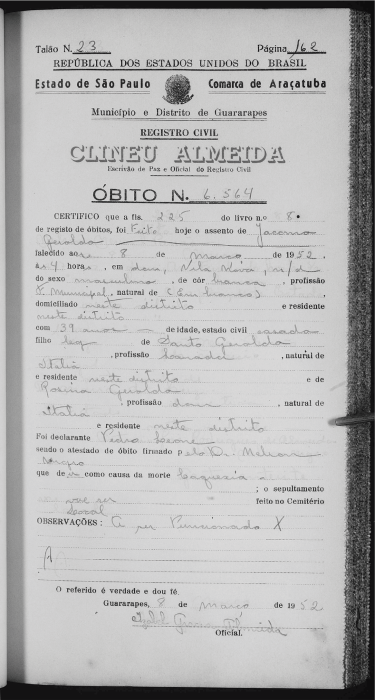 Talão N. 23 Página 162
REPÚBLICA DOS ESTADOS UNIDOS DO BRASIL
Estado de São Paulo Comarca de Araçatuba
Município e Distrito de Guararapes
REGISTRO CIVIL
CLINEU ALMEIDA
Escrivão de Paz e Oficial do Registro Civil
ÓBITO N. 6.364
CERTIFICO que a fls. 225 do livro n.o 8
de registo de óbitos, foi Feito hoje o assento de Jacomo
Geraldo
falecido aos 8 de março de 1952,
ás 4 horas, em dom, Vila Nova, n/d
do sexo masculino, de côr branca, profissão
F. Municipal, natural de (Em branco)
domiciliado neste distrito e residente
neste distrito
com 39 anos de idade, estado civil casado
filho leg de Santo Geraldo
, profissão , natural de
Italia
e residente neste distrito e de
Rosina Geraldo
, profissão dom , natural de
Italia
e residente neste distrito
Foi declarante Pedro
sendo o atestado de óbito firmado pelo Dr. Nelson
que deu como causa da morte
; o sepultamento
vae ser feito no Cemitério
local
OBSERVAÇÕES: A ser X
A
O referido é verdade e dou fé.
Guararapes, 8 de março de 1952
Oficial.